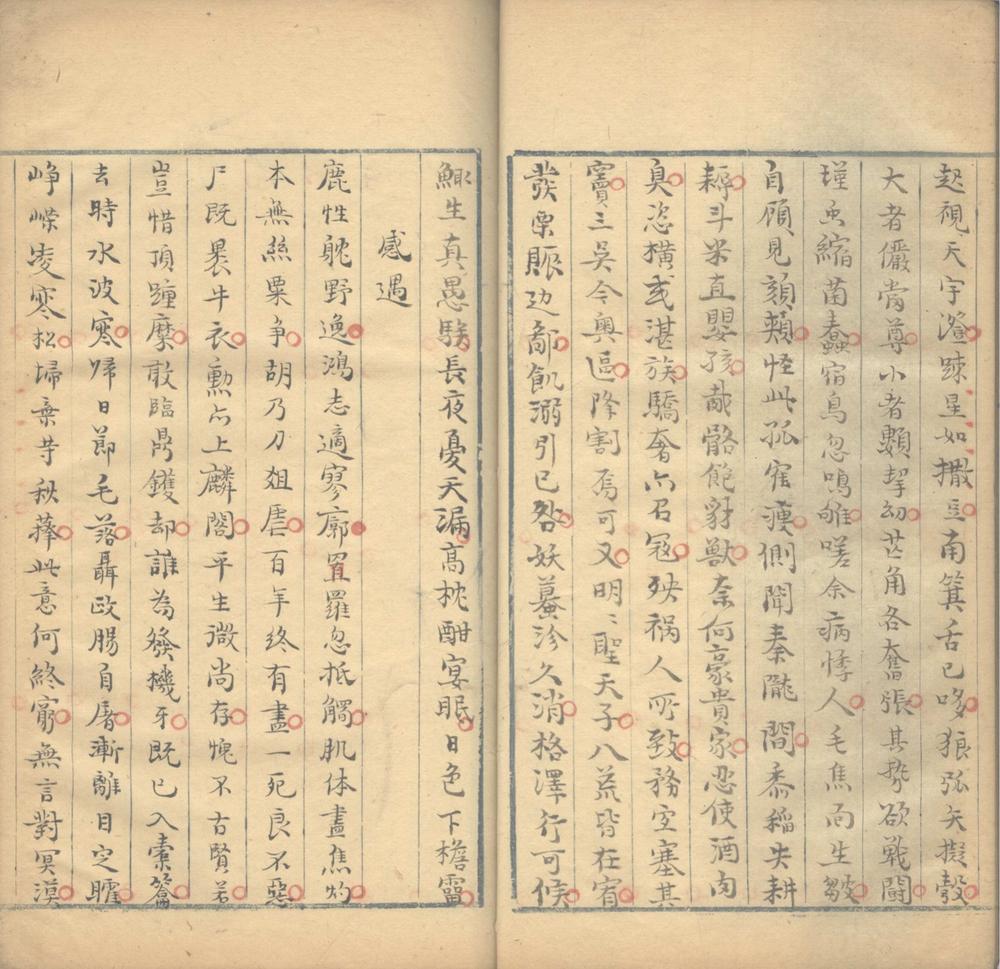 起視天宇澄踈星如撒豆南箕舌已哆狼弧矢擬彀
大者儼當尊小者顆挈幼芒角各奮張其勢欲戰鬪
瑾虫縮菌蠢宿鳥忽鳴雊嗟余病悸人毛焦而生皺
自頋見頷頰怪此孤隺瘦側聞秦隴間黍稲失耕
耨斗米直嬰孩胾骼飽豺獸奈何豪貴家忍使酒肉
臭恣橫或湛族驕奢亦召冦殃禍人所致務空塞其
竇三吴今奥區降割焉可又明〻聖天子八荒皆在宥
發粟賑边鄙飢溺引已咎妖蟇沴久消格澤行可候
鯫生真愚騃長夜憂天漏高枕酣宴眠日色下檐霤
感遇
鹿性躭野逸鴻志適寥廓罝羅忽抵觸肌体盡焦灼
本無絲粟争胡乃刀俎虐百年终有盡一死良不惡
尸既裹牛衣勲亦上麟閣平生微尚存愧不古賢若
豈惜頂踵糜敢臨鼎鑊却誰為發機牙既已入橐籥
去時水波寒帰日節毛落聶政腸自屠漸離目空矐
峥嶸凌寒松埽棄芓秋蘀此意何終窮無言對冥漠